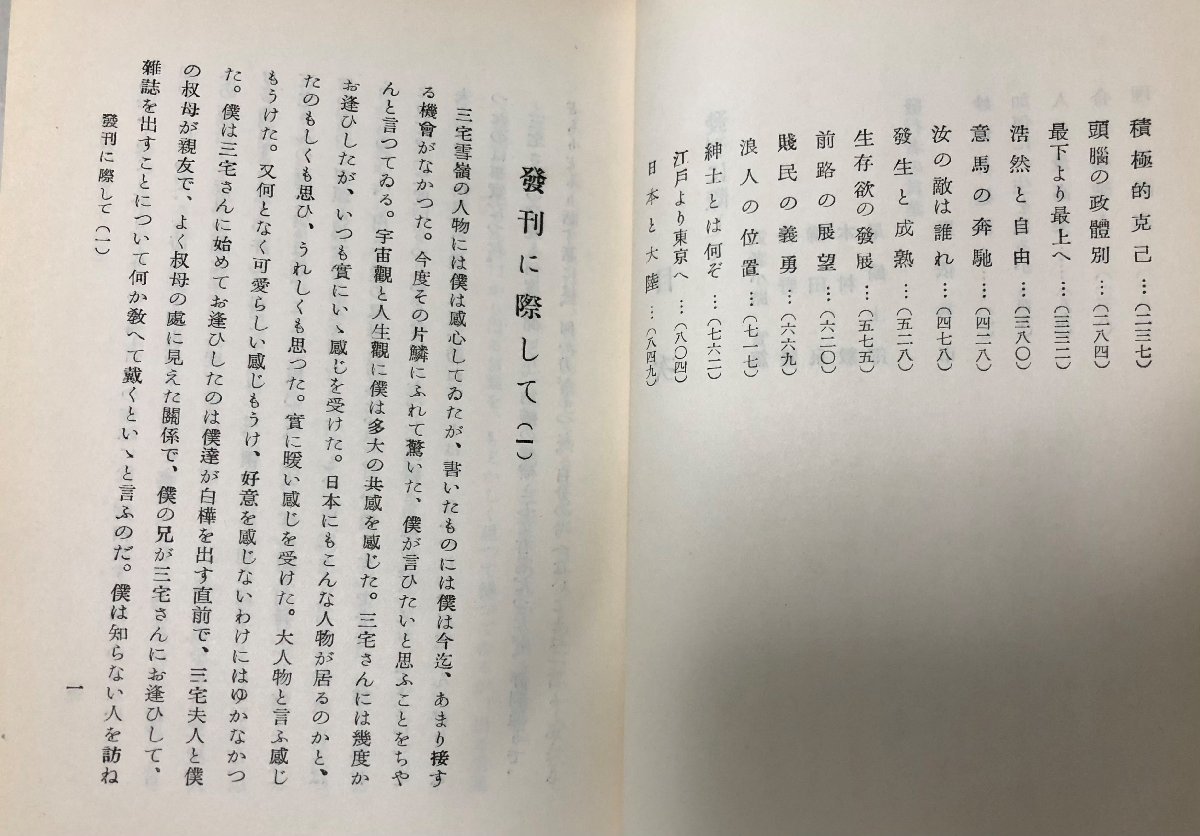 積極的克己…(二三七)
頭腦の政體別…(二八四)
最下より最上へ…(三三二)
浩然と自由…(三八〇)
意馬の奔馳…(四二八)
汝の敵は誰れ…(四七八)
發生と成熟…(五二八)
生存欲の發展…(五七五)
前路の展望…(六二〇)
賤民の義勇…(六六九)
浪人の位置…(七一七)
紳士とは何ぞ…(七六二)
江戸より東京へ…(八〇四)
日本と大陸…(八四九)
發刊に際して(一)
三宅雪嶺の人物には僕は感心してゐたが、書いたものには僕は今迄、あまり接す
る機會がなかつた。今度その片鱗にふれて驚いた、僕が言ひたいと思ふことをちや
んと言つてゐる。宇宙觀と人生觀に僕は多大の共感を感じた。三宅さんには幾度か
お逢ひしたが、いつも實にいゝ感じを受けた。日本にもこんな人物が居るのかと、
たのもしくも思ひ、うれしくも思つた。實に暖い感じを受けた。大人物と言ふ感じ
もうけた。又何となく可愛らしい感じもうけ、好意を感じないわけにはゆかなかつ
た。僕は三宅さんに始めてお逢ひしたのは僕達が白樺を出す直前で、三宅夫人と僕
の叔母が親友で、よく叔母の處に見えた關係で、僕の兄が三宅さんにお逢ひして、
雜誌を出すことについて何か敎へて戴くといゝと言ふのだ。僕は知らない人を訪ね
發刊に際して(一)
一